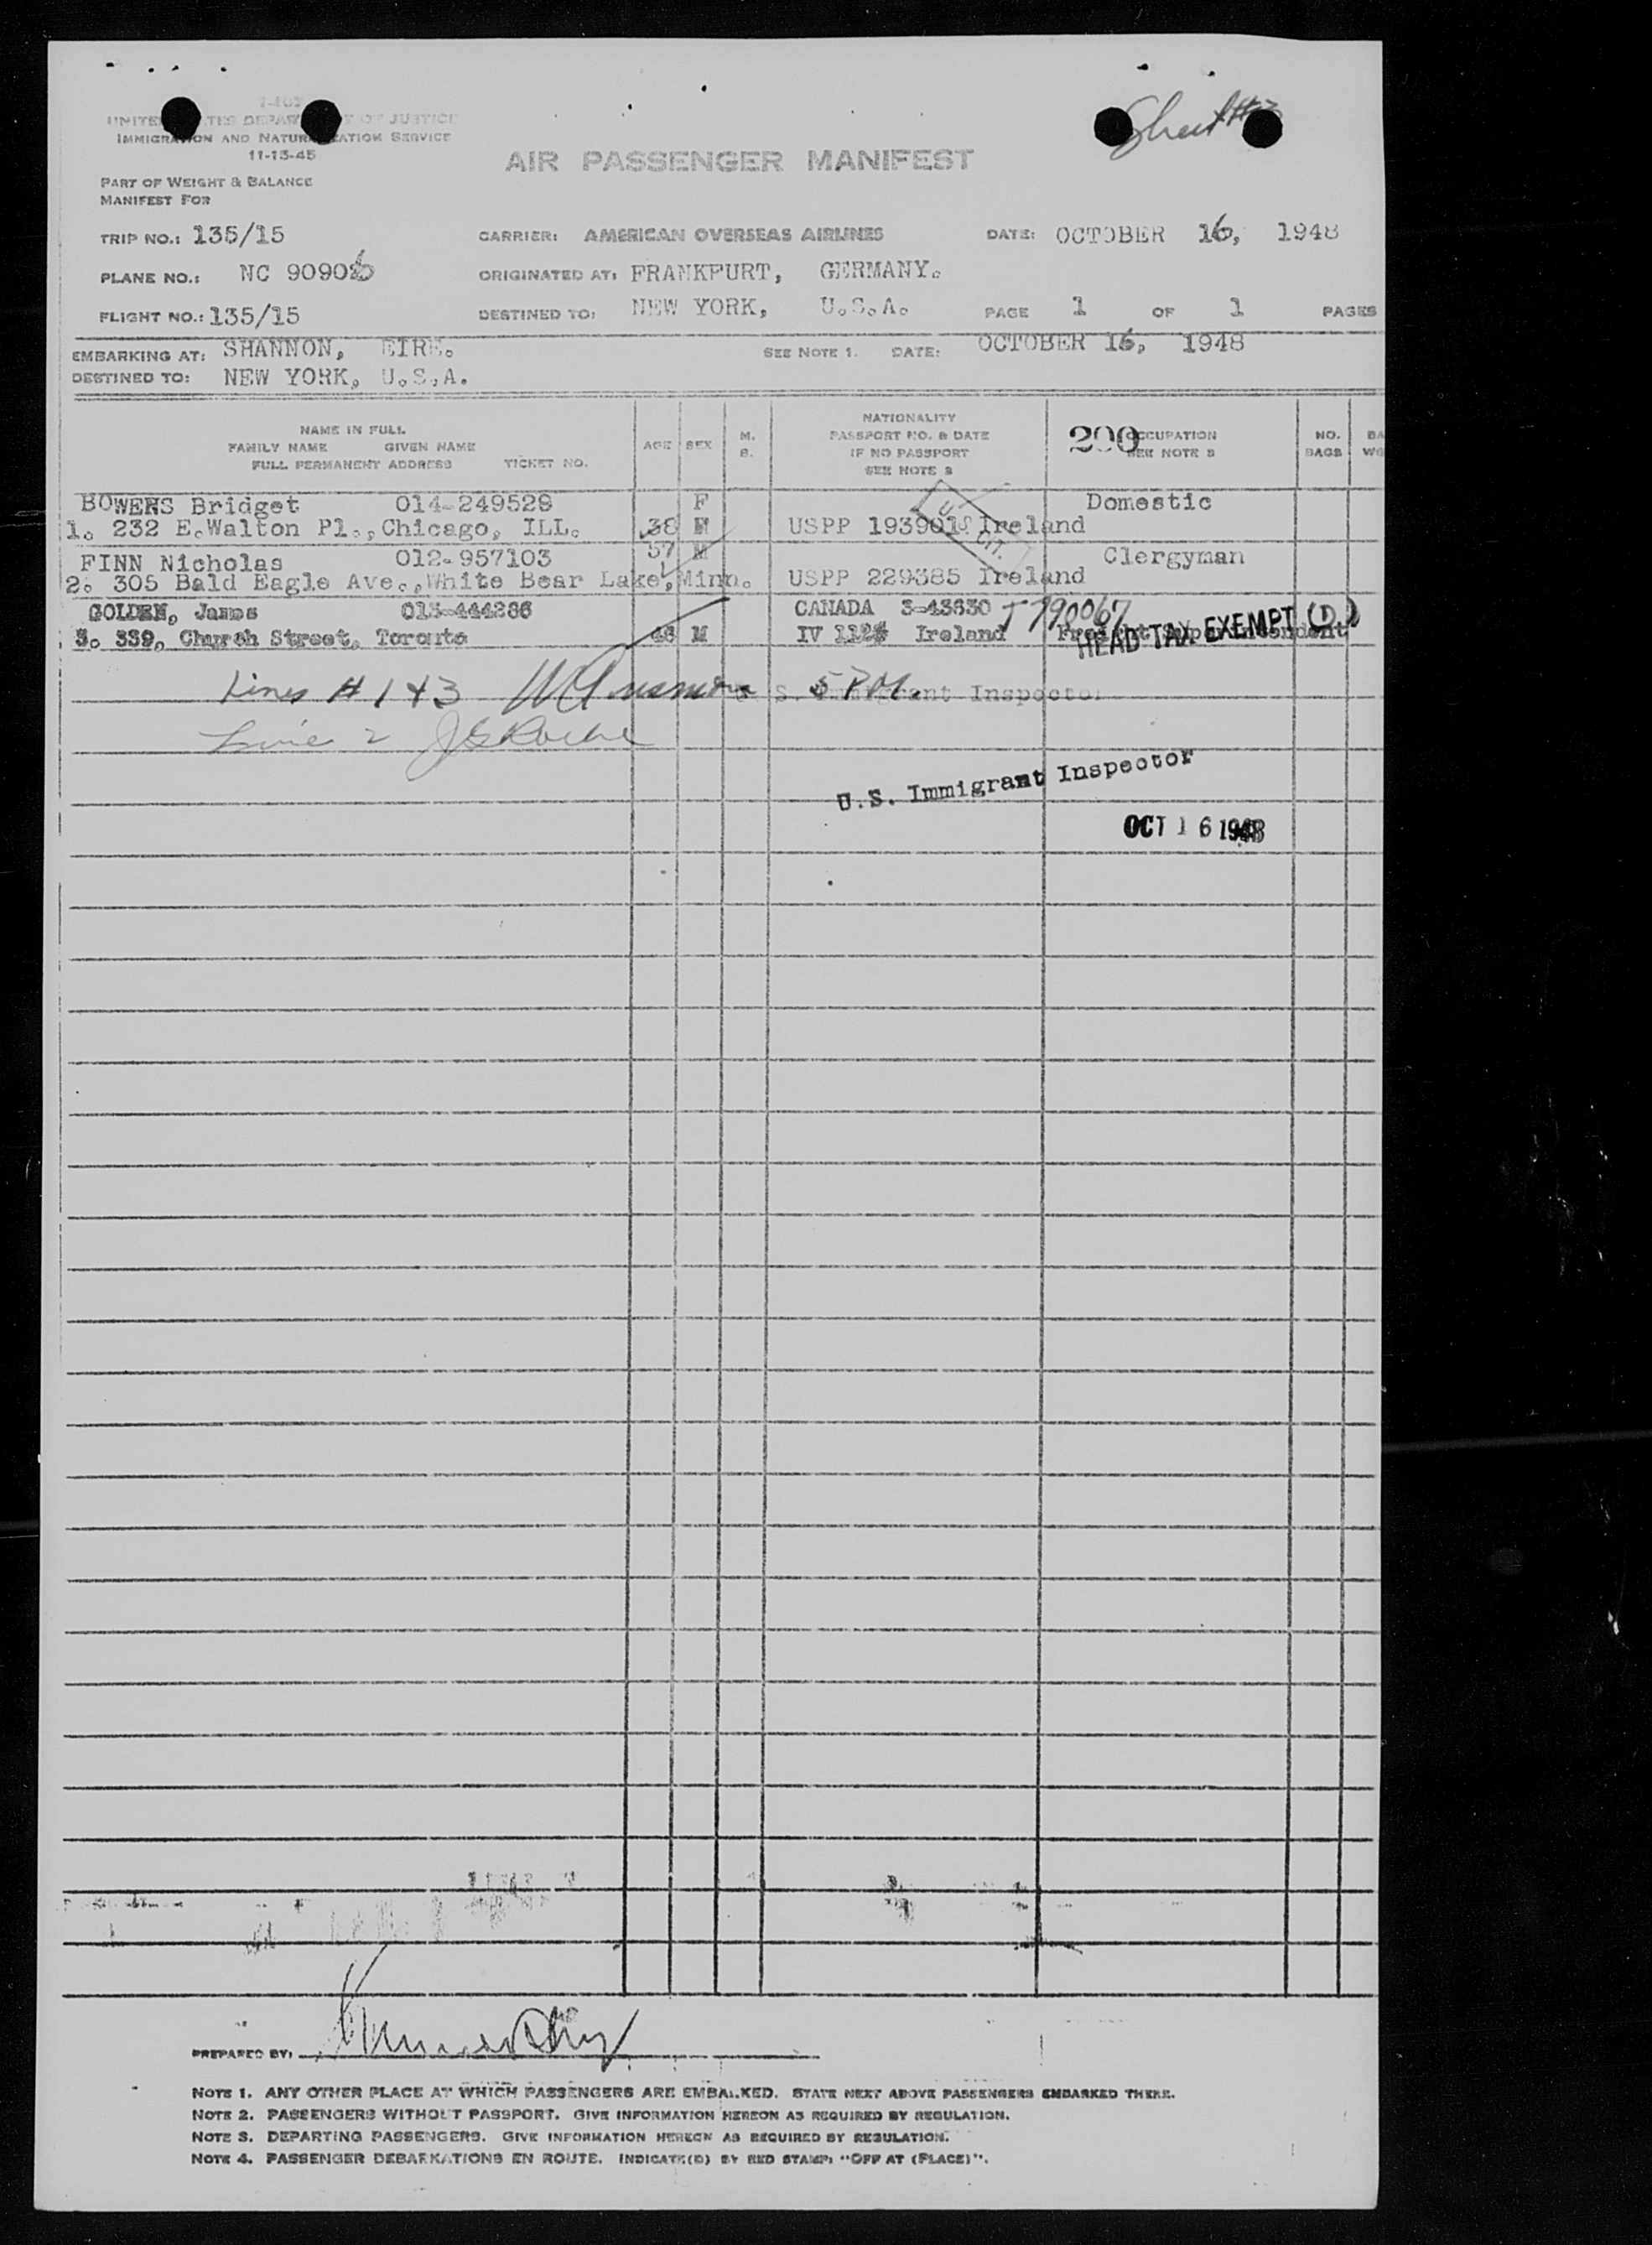 I-403
UNITED STATES DEPARTMENT OF JUSTICE
IMMIGRATION AND NATURALIZATION SERVICE
11-13-45
Sheet #3
AIR PASSENGER MANIFEST
PART OF WEIGHT & BALANCE
MANIFEST FOR
TRIP NO.: 135/15 CARRIER: AMERICAN OVERSEAS AIRLINES DATE: OCTOBER 16, 1948
PLANE NO.: NC 90906 ORIGINATED AT: FRANKFURT, GERMANY.
FLIGHT NO.: 135/15 DESTINED TO: NEW YORK, U.S.A. PAGE 1 OF 1 PAGES
EMBARKING AT: SHANNON, EIRE. SEE NOTE 1. DATE: OCTOBER 16, 1948
DESTINED TO: NEW YORK, U.S.A.
NAME IN FULL
FAMILY NAME GIVEN NAME
FULL PERMANENT ADDRESS TICKET NO.
AGE SEX M. S.
NATIONALITY
PASSPORT NO. & DATE
IF NO PASSPORT
SEE NOTE 2
200 OCCUPATION
SEE NOTE 2
NO. BAGS
BA
WG
BOWENS Bridget 014-249528 F Domestic
1. 232 E.Walton Pl., Chicago, ILL. 38 USPP 193901 Ireland
U.S. CIT.
FINN Nicholas 012-957103 57 M Clergyman
2. 305 Bald Eagle Ave., White Bear Lake, Minn. USPP 229385 Ireland
GOLDEN, James 013-444286 CANADA 3-43630 T790067
3. 339, Church Street, Toronto 48 M IV Ireland Freight Superintendent
HEAD TAX EXEMPT (D)
Lines # 1 + 3 5 PM U.S. Immigrant Inspector
Line 2 J G Roche
U.S. Immigrant Inspector
OCT 16 1948
PREPARED BY:
NOTE 1. ANY OTHER PLACE AT WHICH PASSENGERS ARE EMBARKED. STATE NEXT ABOVE PASSENGERS EMBARKED THERE.
NOTE 2. PASSENGERS WITHOUT PASSPORT. GIVE INFORMATION HEREON AS REQUIRED BY REGULATION.
NOTE 3. DEPARTING PASSENGERS. GIVE INFORMATION HEREON AS REQUIRED BY REGULATION.
NOTE 4. PASSENGER DEBARKATIONS EN ROUTE. INDICATE(D) BY RED STAMP: "OFF AT (PLACE)".